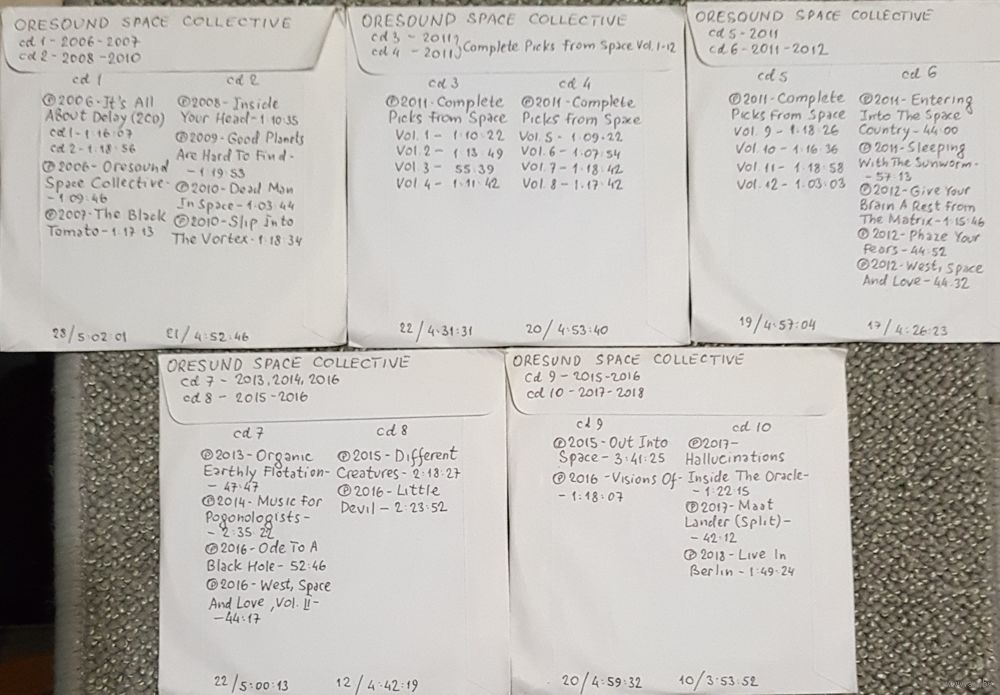 ORESOUND SPACE COLLECTIVE
cd 1 - 2006 - 2007
cd 2 - 2008 - 2010
cd 1
℗2006 - It's All
About Delay (2CD)
cd 1 - 1:16:07
cd 2 - 1:18:56
℗2006 - Oresound
Space Collective -
- 1:09:46
℗2007 - The Black
Tomato - 1:17:13
28 / 5:02:01
cd 2
℗2008 - Inside
Your Head - 1:10:35
℗2009 - Good Planets
Are Hard To Find -
- 1:19:53
℗2010 - Dead Man
In Space - 1:03:44
℗2010 - Slip Into
The Vortex - 1:18:34
21 / 4:52:46
ORESOUND SPACE COLLECTIVE
cd 3 - 2011
cd 4 - 2011
Complete Picks From Space Vol. 1-12
cd 3
℗2011 - Complete
Picks From Space
Vol. 1 - 1:10:22
Vol. 2 - 1:13:49
Vol. 3 - 55:39
Vol 4 - 1:11:42
22 / 4:31:31
cd 4
℗2011 - Complete
Picks From Space
Vol. 5 - 1:09:22
Vol. 6 - 1:07:54
Vol. 7 - 1:18:42
Vol. 8 - 1:17:42
20 / 4:53:40
ORESOUND SPACE COLLECTIVE
cd 5 - 2011
cd 6 - 2011 - 2012
cd 5
℗2011 - Complete
Picks From Space
Vol. 9 - 1:18:26
Vol. 10 - 1:16:36
Vol. 11 - 1:18:58
Vol. 12 - 1:03:03
19 / 4:57:04
cd 6
℗2011 - Entering
Into The Space
Country - 44:00
℗2011 - Sleeping
With The Sunworm -
- 57:13
℗2012 - Give Your
Brain A Rest From
The Matrix - 1:15:46
℗2012 - Phaze Your
Fears - 44:52
℗2012 - West, Space
And Love - 44:32
17 / 4:26:23
ORESUND SPACE COLLECTIVE
cd 7 - 2013, 2014, 2016
cd 8 - 2015 - 2016
cd 7
℗2013 - Organic
Earthly Flotation -
- 47:47
℗2014 - Music For
Pogonologists -
- 2:35:22
℗2016 - Ode To A
Black Hole - 52:46
℗2016 - West, Space
And Love, Vol. II -
- 44:17
22 / 5:00:13
cd 8
℗2015 - Different
Creatures - 2:18:27
℗2016 - Little
Devil - 2:23:52
12 / 4:42:19
ORESUND SPACE COLLECTIVE
cd 9 - 2015 - 2016
cd 10 - 2017 - 2018
cd 9
℗2015 - Out Into
Space - 3:41:25
℗2016 - Visions Of -
- 1:18:07
20 / 4:59:32
cd 10
℗2017 -
Hallucinations
Inside The Oracle -
- 1:22:15
℗2017 - Maat
Lander (Split) -
- 42:12
℗2018 - Live In
Berlin - 1:49:24
10 / 3:53:52